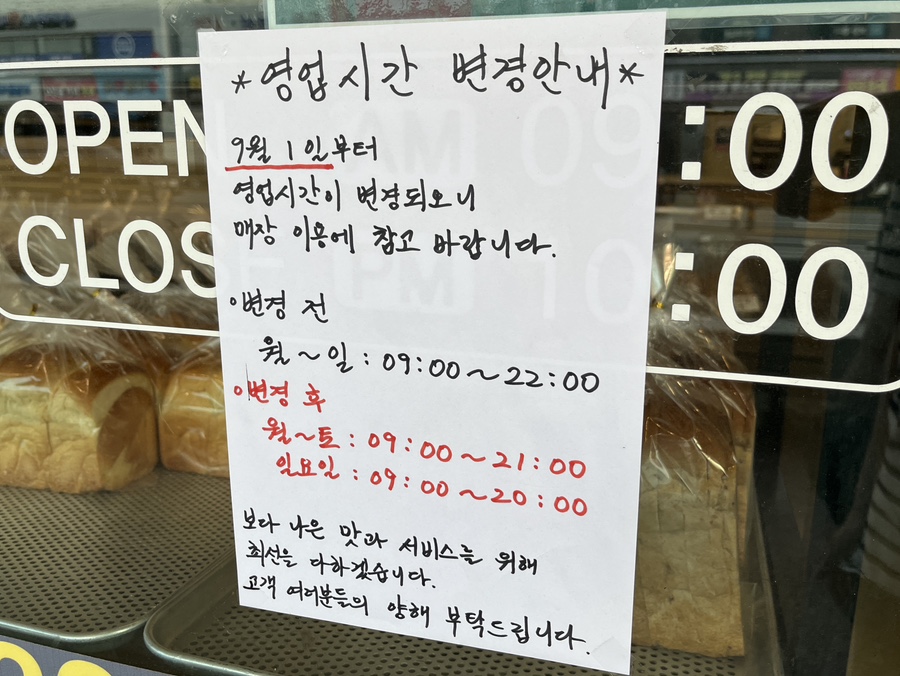 *영업시간 변경안내*
9월 1일부터
영업시간이 변경되오니
매장 이용에 참고 바랍니다.
○변경 전
월~일 : 09:00~22:00
○변경 후
월~토 : 09:00~21:00
일요일 : 09:00~20:00
보다 나은 맛과 서비스를 위해
최선을 다하겠습니다.
고객 여러분들의 양해 부탁드립니다.
OPEN AM 09:00
CLOSE PM 10:00